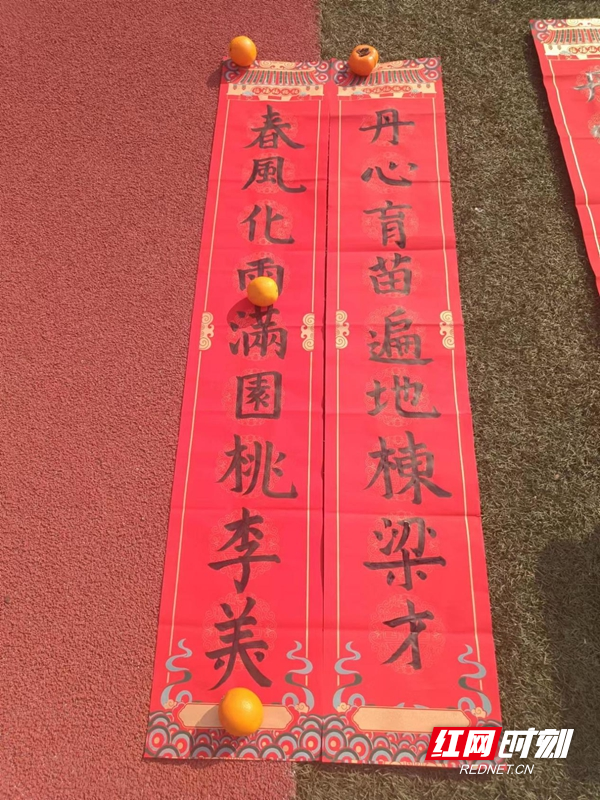 丹心育苗遍地棟梁才
春風化雨滿園桃李美
红网时刻
REDNET.CN